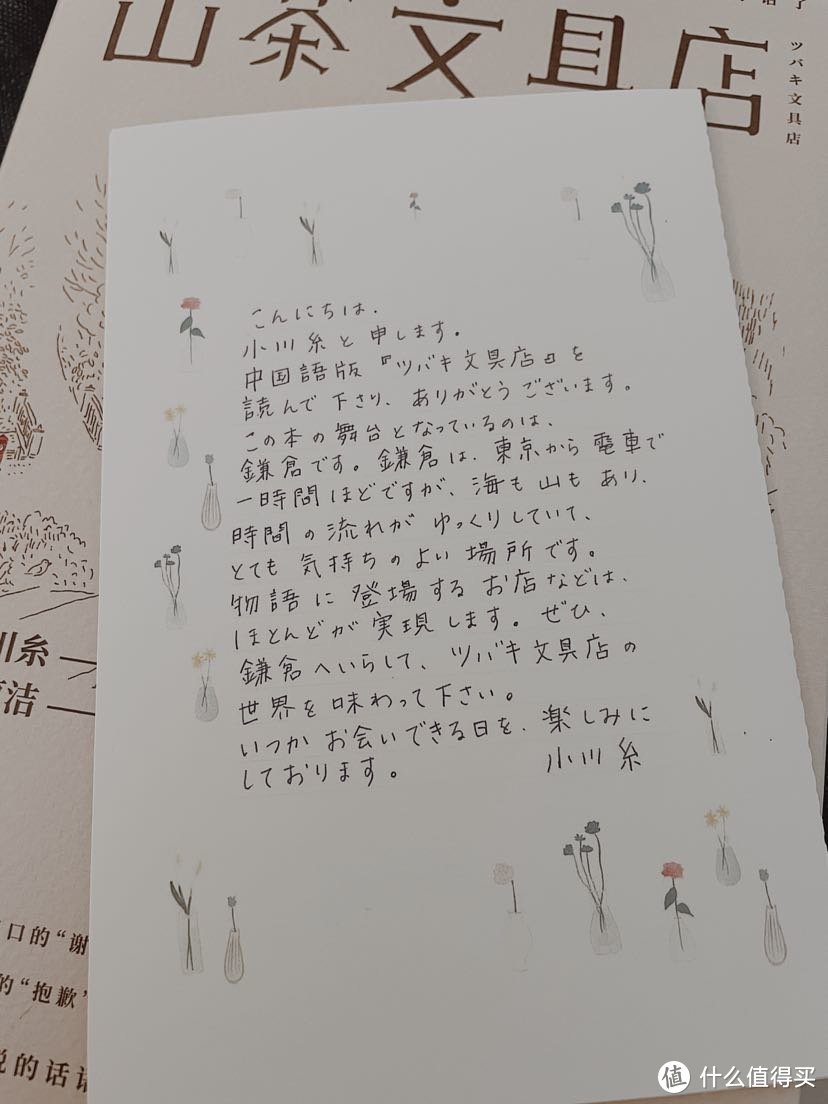 山茶文具店
ツバキ文具店
こんにちは、
小川糸と申します。
中国語版『ツバキ文具店』を
読んで下さり、ありがとうございます。
この本の舞台となっているのは、
鎌倉です。鎌倉は、東京から電車で
一時間ほどですが、海も山もあり、
時間の流れがゆっくりしていて、
とても気持ちのよい場所です。
物語に登場するお店などは、
ほとんどが実現します。ぜひ、
鎌倉へいらして、ツバキ文具店の
世界を味わって下さい。
いつかお会いできる日を、楽しみに
しております。
小川糸
川糸
洁
口的“谢
的“抱歉”
说的话
值 什么值得买